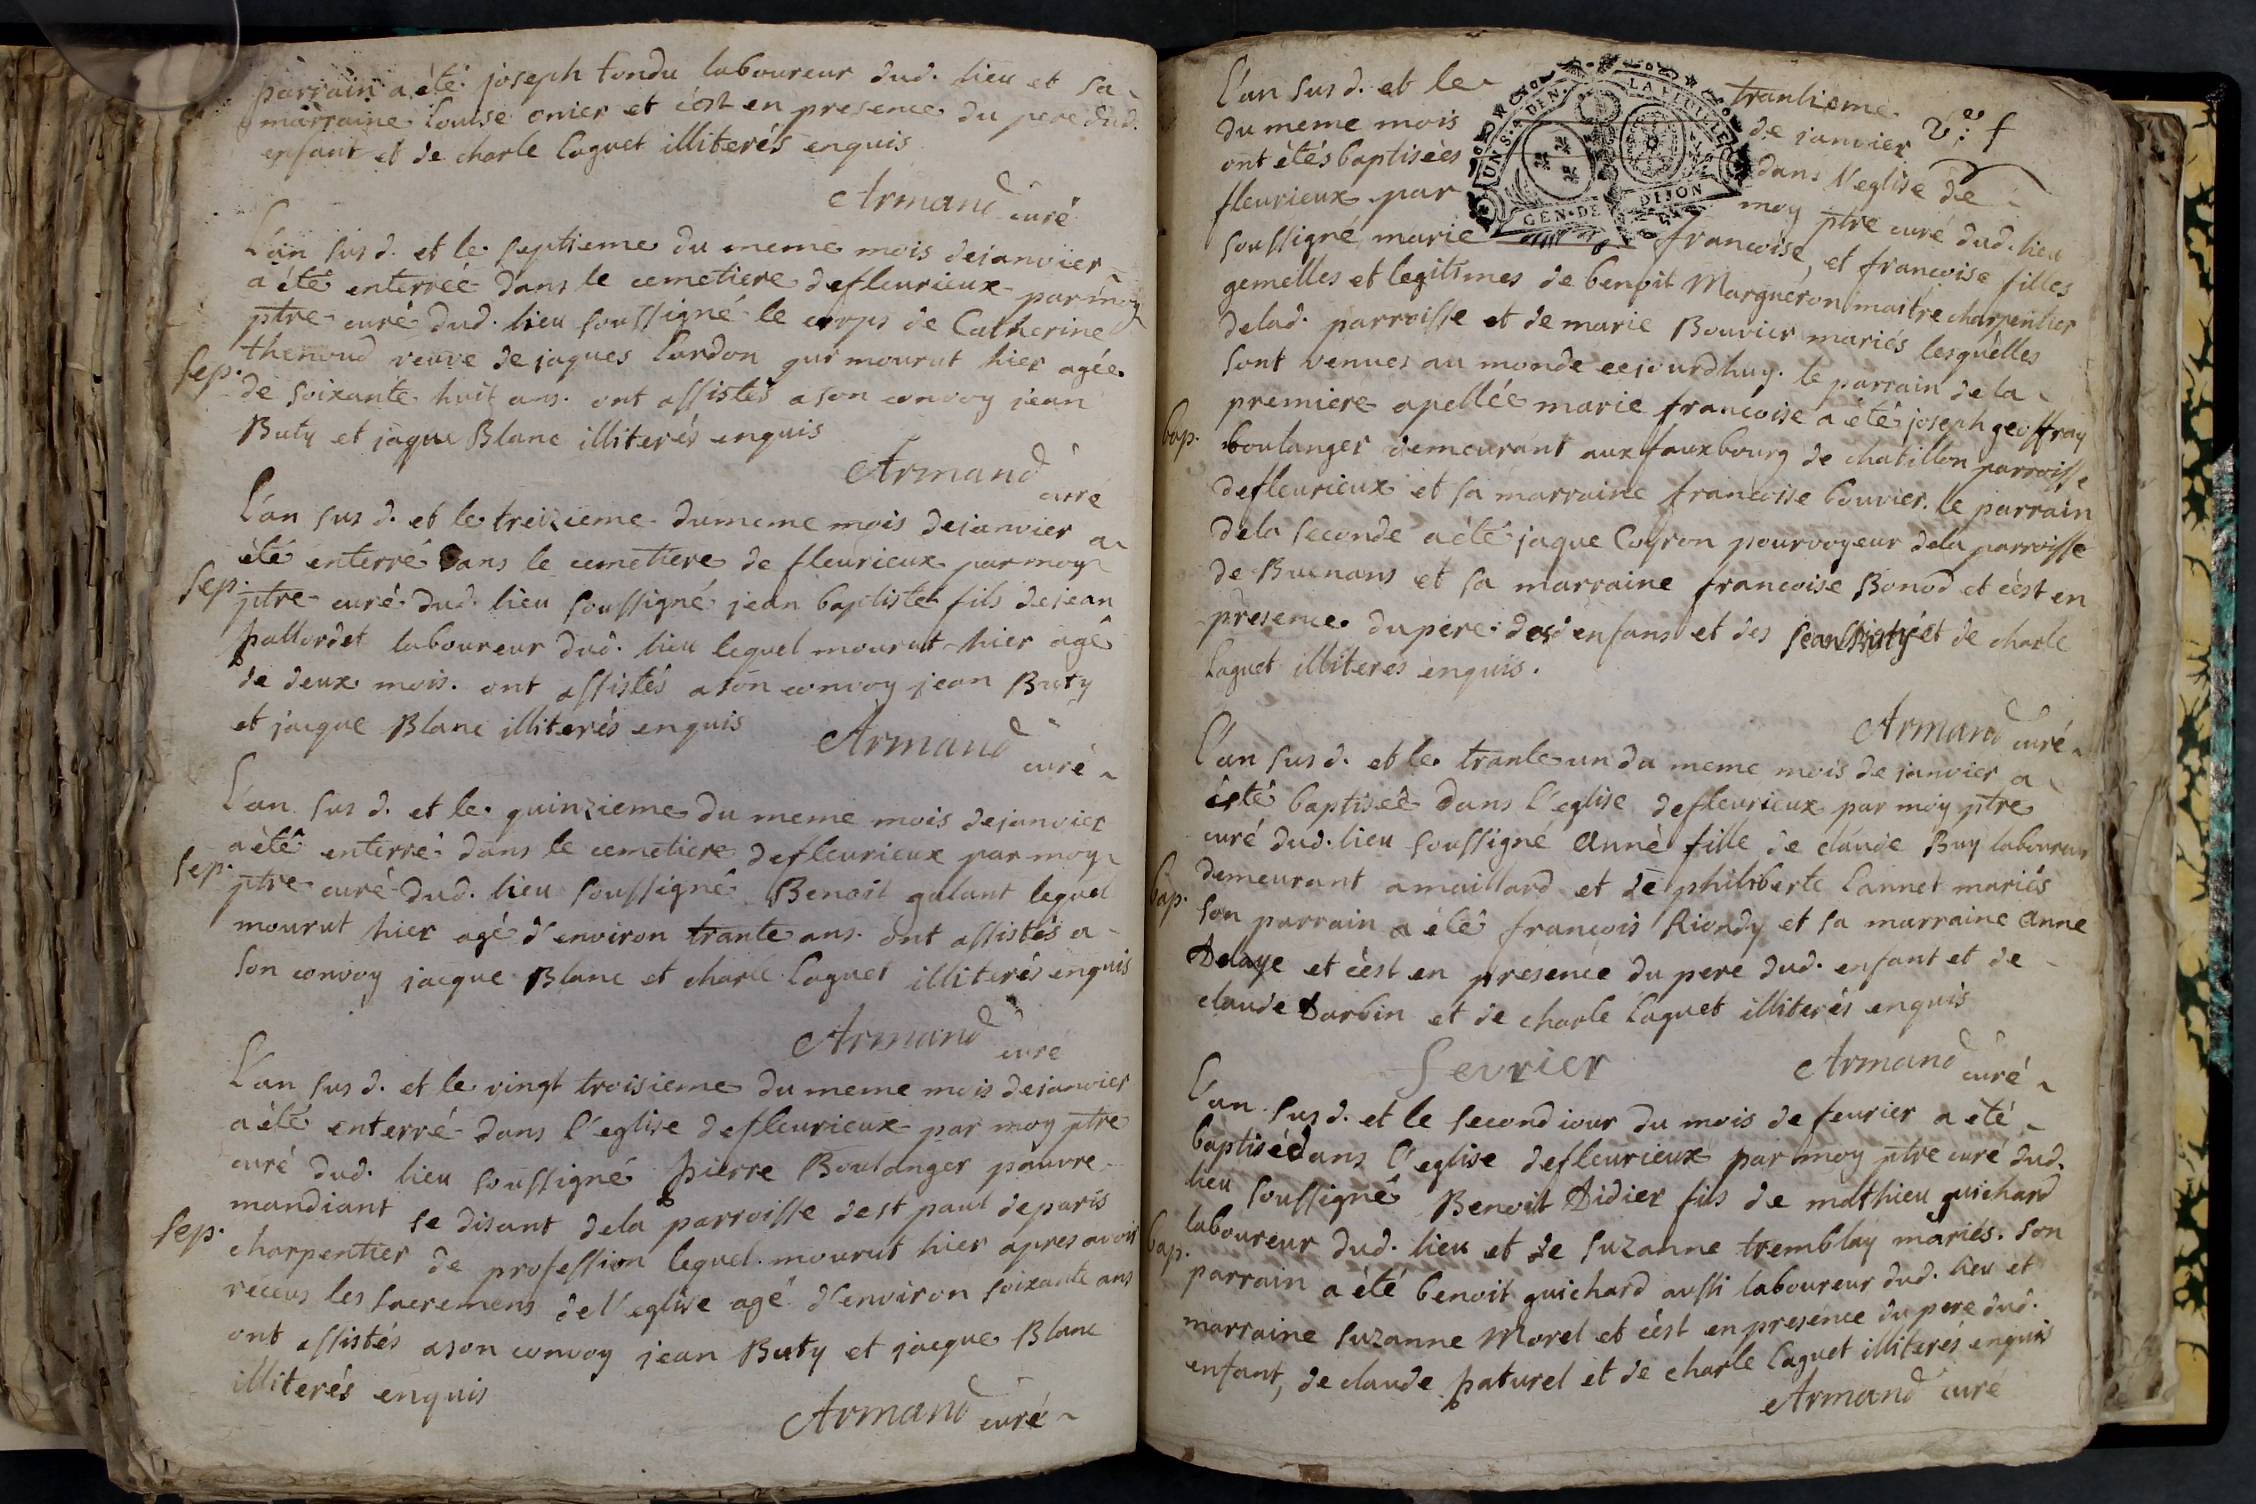 parrain a été joseph tondu laboureur dud. lieu et sa
marraine louise onier et c'est en presence du pere dud.
enfant et de charle laguet illiterés enquis
Armand curé
L'an sus d. et le septieme du meme mois de janvier
a été enterrée dans le cemetiere de fleurieux par moy
ptre curé dud. lieu soussigné le corps de Catherine
thenoud veuve de jaques lardon qui mourut hier agée
sep.
de soixante huit ans. ont assistés a son convoy jean
Buty et jaque Blanc illiterés enquis
Armand curé
L'an sus d. et le treizieme du meme mois de janvier a
été enterré dans le cemetiere de fleurieux par moy
sep.
ptre curé dud. lieu soussigné jean baptiste fils de jean
pallordet laboureur dud. lieu lequel mourut hier agé
de deux mois. ont assistés a son convoy jean Buty
et jacque Blanc illiterés enquis
Armand curé
L'an sus d. et le quinzieme du meme mois de janvier
a été enterré dans le cemetiere de fleurieux par moy
sep.
ptre curé dud. lieu soussigné Benoit galant lequel
mourut hier agé d'environ trante ans. ont assistés a
son convoy jacque Blanc et charle laguet illiterés enquis
Armand curé
L'an sus d. et le vingt troisieme du meme mois de janvier
a été enterré dans l'eglise de fleurieux par moy ptre
curé dud. lieu soussigné pierre Boulanger pauvre
mandiant se disant de la parroisse de st paul de paris
sep.
charpentier de profession lequel mourut hier apres avoir
réceus les sacremens de l'eglise agé d'environ soixante ans
ont assistés a son convoy jean Buty et jacque Blanc
illiterés enquis
Armand curé
L'an sus d. et le trantieme
du meme mois de janvier
ont étés baptisées dans l'eglise de
fleurieux par moy ptre curé dud. lieu
soussigné marie francoise, et francoise filles
gemelles et legitimes de benoit Margueron maitre charpentier
de lad. parroisse et de marie Bouvier mariés lesquelles
sont venues au monde cejourdhuy. le parrain de la
premiere apellée marie francoise a été joseph geoffray
bap.
boulanger demeurant aux fauxbourg de chatillon parroisse
de fleurieux et sa marraine francoise bouvier. le parrain
de la seconde a été jaque Coyron pourvoyeur de la parroisse
de Buenans et sa marraine francoise Bonod et c'est en
presence du pere desd enfans et des jean Buty et de charle
laguet illiterés enquis.
Armand curé
L'an sus d. et le trante un du meme mois de janvier a
esté baptiseé dans l'eglise de fleurieux par moy ptre
curé dud. lieu soussigné Anne fille de claude Buy laboureur
demeurant a maillard et de philiberte lannet mariés
bap.
son parrain a été françois Riondy et sa marraine Anne
Delaye et c'est en presence du pere dud. enfant et de
claude Darbin et de charle laguet illiterés enquis
Armand curé
fevrier
L'an sus d. et le second iour du mois de feurier a été
baptisé dans l'eglise de fleurieux par moy ptre curé dud.
lieu soussigné Benoit Didier fils de mathieu guichard
bap.
laboureur dud. lieu et de suzanne tremblay mariés. son
parrain a été benoit guichard aussi laboureur dud. lieu et
marraine suzanne Morel et c'est en presence du pere dud.
enfant, de claude paturel et de charle laguet illiterés enquis
Armand curé
UN S. 4 DEN.
LA FEUILLE
GEN. DE DIJON